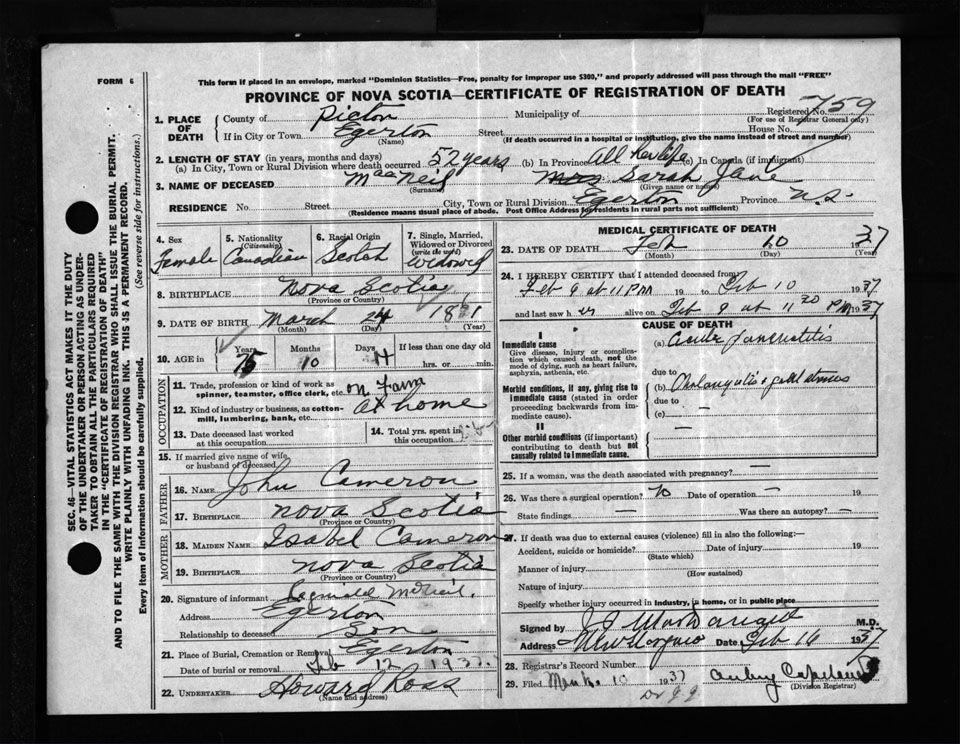 FORM 6
This form if placed in an envelope, marked "Dominion Statistics—Free, penalty for improper use $300," and properly addressed will pass through the mail "FREE"
PROVINCE OF NOVA SCOTIA—CERTIFICATE OF REGISTRATION OF DEATH
SEC. 46—VITAL STATISTICS ACT MAKES IT THE DUTY
OF THE UNDERTAKER OR PERSON ACTING AS UNDER-
TAKER TO OBTAIN ALL THE PARTICULARS REQUIRED
IN THE "CERTIFICATE OF REGISTRATION OF DEATH"
AND TO FILE THE SAME WITH THE DIVISION REGISTRAR WHO SHALL ISSUE THE BURIAL PERMIT.
WRITE PLAINLY WITH UNFADING INK. THIS IS A PERMANENT RECORD.
Every item of Information should be carefully supplied. (See reverse side for instructions.)
1. PLACE OF DEATH County of Pictou Municipality of Registered No. 759
(For use of Registrar General only)
If in City or Town Egerton Street House No.
(Name) (If death occurred in a hospital or institution, give the name instead of street and number)
2. LENGTH OF STAY (in years, months and days)
(a) In City, Town or Rural Division where death occurred 52 years (b) In Province All her life (c) In Canada (if immigrant)
3. NAME OF DECEASED MacNeil Mrs Sarah Jane
(Surname) (Given name or names)
RESIDENCE No. Street City, Town or Rural Division Egerton Province N.S.
(Residence means usual place of abode. Post Office Address for residents in rural parts not sufficient)
4. Sex Female
5. Nationality (Citizenship) Canadian
6. Racial Origin Scotch
7. Single, Married, Widowed or Divorced (write the word) Widowed
8. BIRTHPLACE Nova Scotia
(Province or Country)
9. DATE OF BIRTH March 24
(Month) (Day) (Year)
10. AGE in Years 75 Months 10 Days If less than one day old
hrs. or min.
OCCUPATION
11. Trade, profession or kind of work as
spinner, teamster, office clerk, etc. on Farm
12. Kind of industry or business, as cotton-
mill, lumbering, bank, etc. at home
13. Date deceased last worked
at this occupation
14. Total yrs. spent in
this occupation
15. If married give name of wife
or husband of deceased
FATHER
16. NAME John Cameron
17. BIRTHPLACE Nova Scotia
(Province or Country)
MOTHER
18. MAIDEN NAME Isabel Cameron
19. BIRTHPLACE Nova Scotia
(Province or Country)
20. Signature of informant McNeil
Address Egerton
Relationship to deceased Son
21. Place of Burial, Cremation or Removal Egerton
Date of burial or removal Feb 12 1937
22. UNDERTAKER Howard Ross
(Name and address)
MEDICAL CERTIFICATE OF DEATH
23. DATE OF DEATH Feb 10 1937
(Month) (Day) (Year)
24. I HEREBY CERTIFY that I attended deceased from
Feb 9 at 11 PM 19 to Feb 10 1937
and last saw her alive on Feb 9 at 11 20 PM 1937
CAUSE OF DEATH
I
Immediate cause (a) Acute Pancreatitis
Give disease, injury or complica-
tion which caused death, not the
mode of dying, such as heart failure,
asphyxia, asthenia, etc. due to
Morbid conditions, if any, giving rise to
immediate cause (stated in order
proceeding backwards from im-
mediate cause).
(b)
due to
(c) —
II
Other morbid conditions (if important)
contributing to death but not
causally related to immediate cause. —
25. If a woman, was the death associated with pregnancy? —
26. Was there a surgical operation? No Date of operation — 19
State findings — Was there an autopsy? —
27. If death was due to external causes (violence) fill in also the following:—
Accident, suicide or homicide? Date of injury 19
(State which)
Manner of injury
(How sustained)
Nature of injury
Specify whether injury occurred in industry, in home, or in public place
Signed by M.D.
Address New Glasgow Date Feb 16 1937
28. Registrar's Record Number
29. Filed March 10 1937
(Division Registrar)